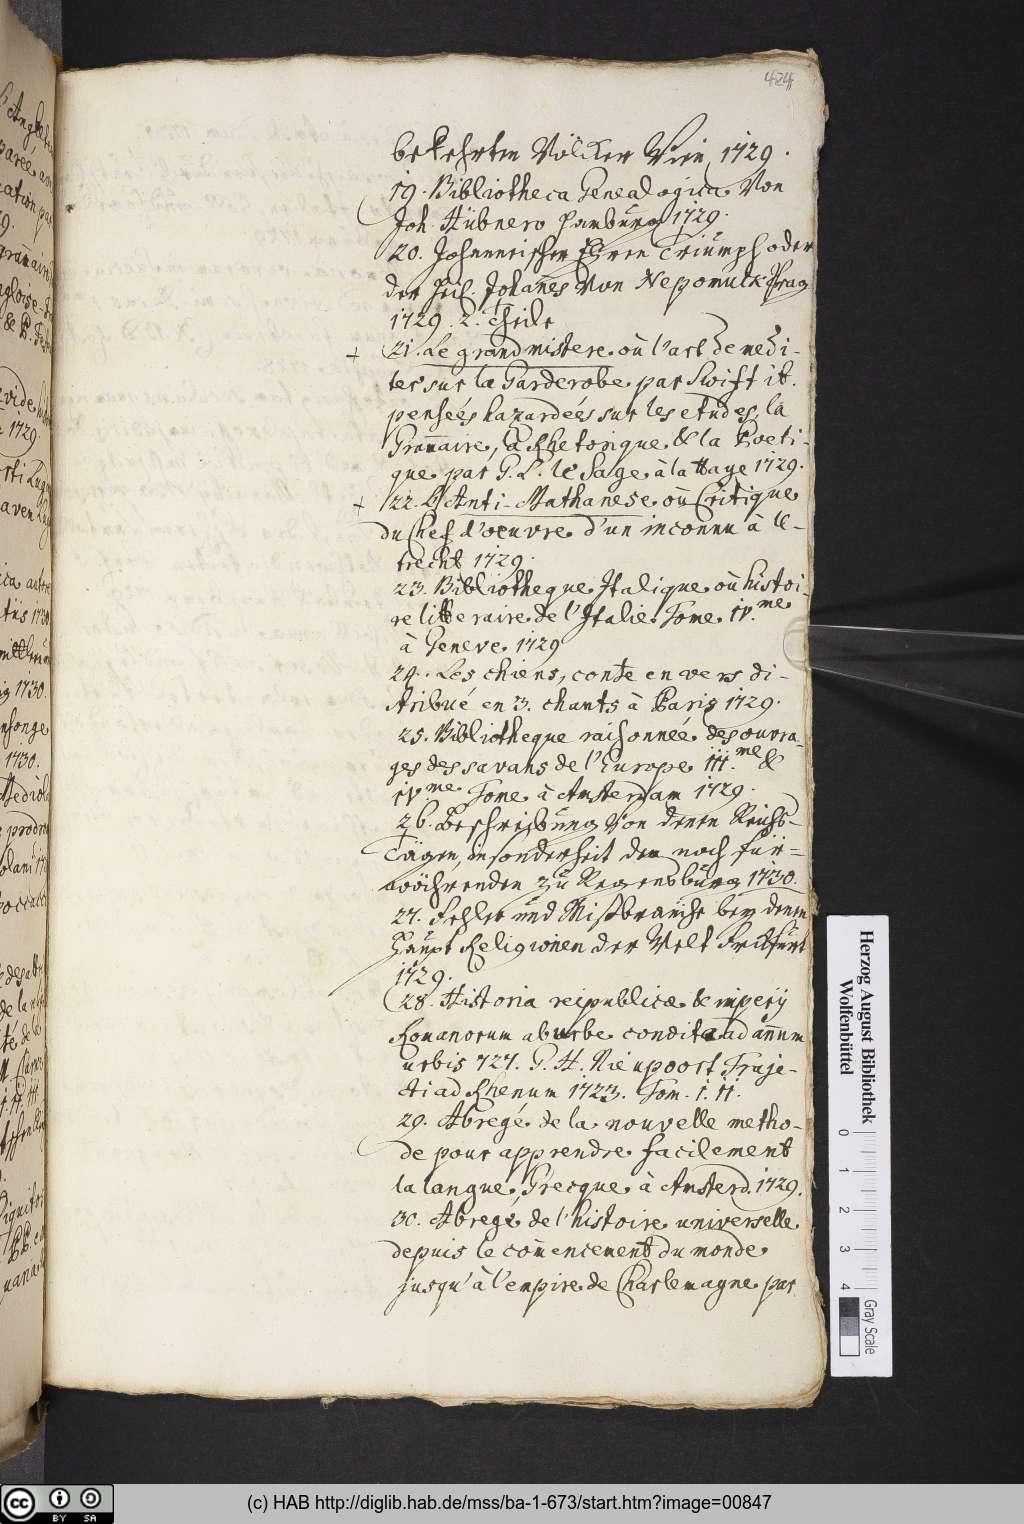 424
bekehrten Völcker Wien 1729.
19. Bibliotheca Genealogica von
Joh. Hübnero Hamburg 1729.
20. Johanneischer Ehren Triumph oder
der Heil. Johannes von Nepomuk Prag
1729. 2. Theile
+ 21. Le grand mistere où l'art de medi-
ter sur la Garderobe par Swift it.
penseés hazardeés sur les etudes, la
Gram̄aire, la Rhetorique & la Poeti-
que par G. L. le Sage à la Haye 1729.
+ 22. L'Anti-Mathanese où Critique
du Chef d'oeuvre d'un inconnu à U-
trecht 1729.
23. Bibliotheque Italique où histoi-
re litteraire de l'Italie Tome iv.me
à Geneve 1729
24. Les chiens, conte en vers di-
stribué en 3. chants à Paris 1729.
25. Bibliotheque raisonnée des ouvra-
ges des savans de l'Europe iii.me &
ivme Tome à Amsterdam 1729.
26. Beschreibung von denen Reichs-
Tägen, insonderheit den noch für-
währenden zu Regensburg 1730.
27. Fehler und Mißbräuche bey denen
Haupt Religionen der Welt Frckfurt
1729.
28. Historia reipublicæ & imperij
Romanorum ab urbe condita ad annum
urbis 727. G. H. Nieupoort Traje-
cti ad Rhenum 1723. Tom. i. ii.
29. Abregé de la nouvelle metho-
de pour apprendre facilement
la langue Grecque à Amsterd. 1729.
30. Abregé de l'histoire universelle
depuis le com̄encement du monde
jusqu'à l'empire de Charlemagne par
Herzog August Bibliothek
Wolfenbüttel
0 1 2 3 4
Gray Scale
(c) HAB http://diglib.hab.de/mss/ba-1-673/start.htm?image=00847
CC BY SA